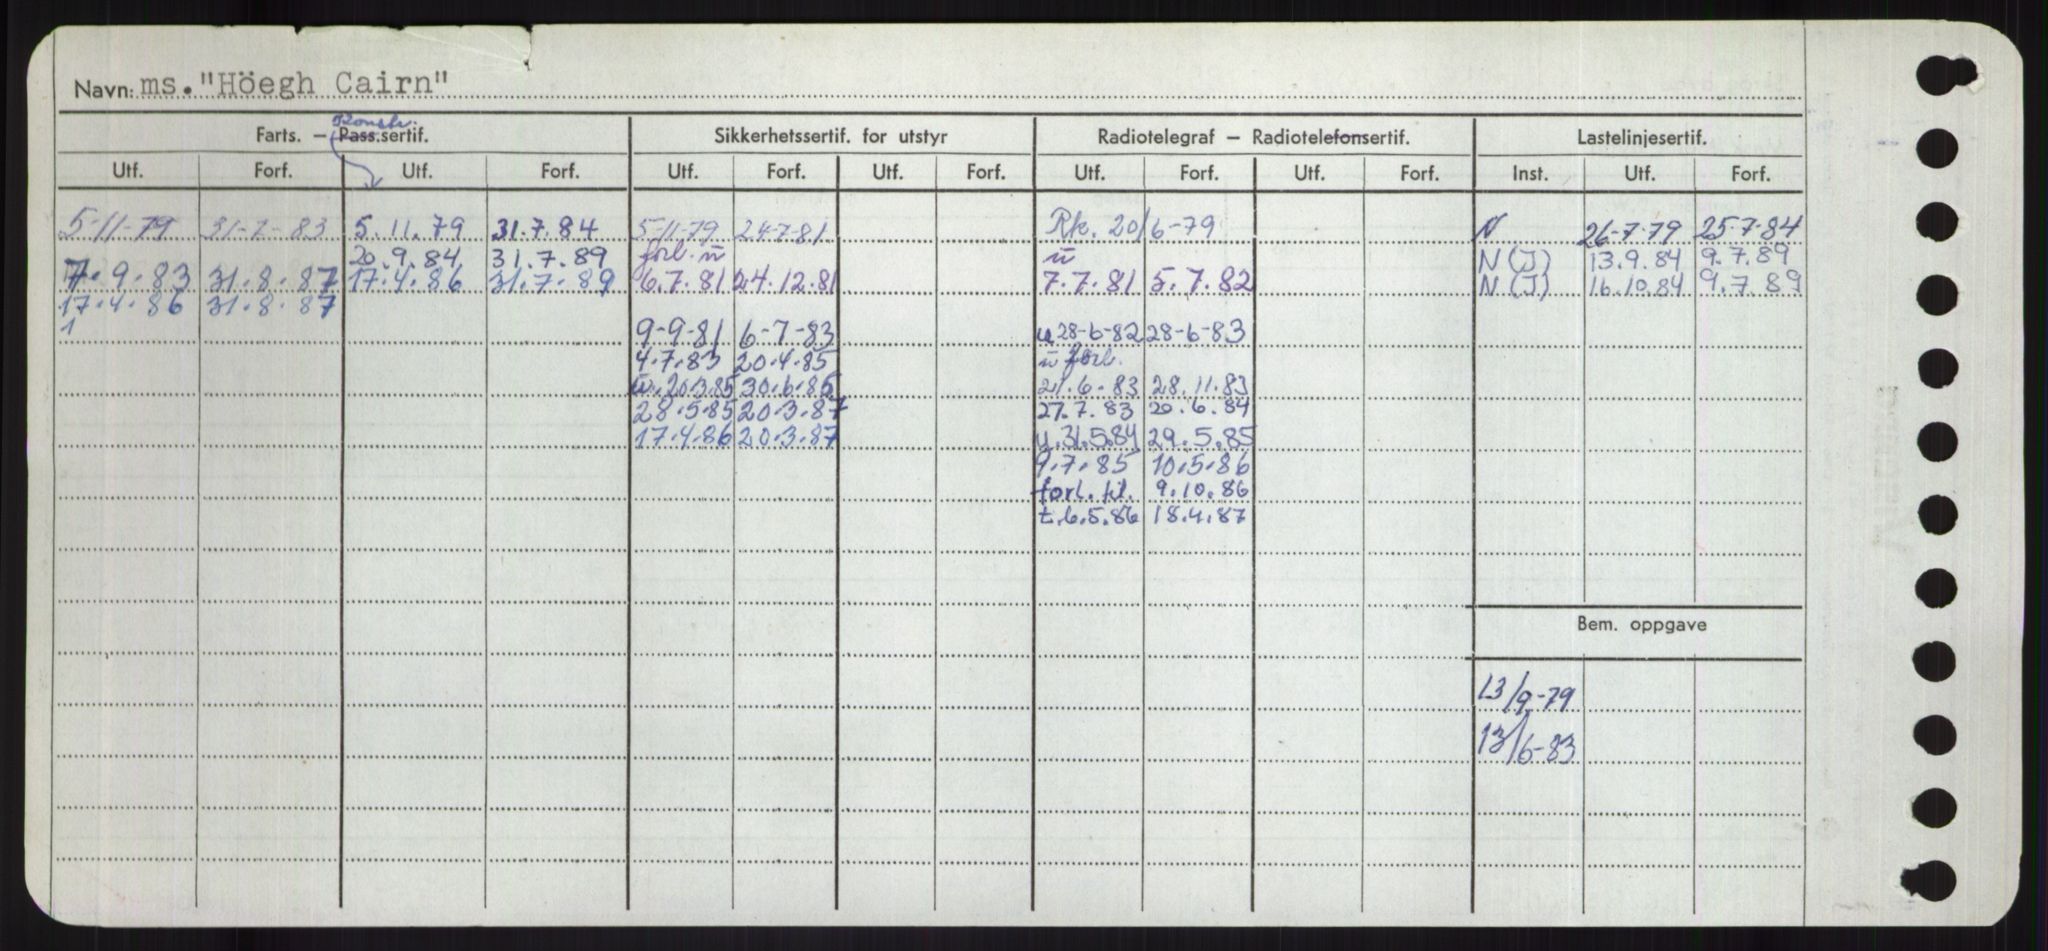 Navn: ms. "Höegh Cairn"
Konstr.
Farts. – Pass.sertif. Sikkerhetssertif. for utstyr Radiotelegraf – Radiotelefonsertif. Lastelinjesertif.
Utf. Forf. Utf. Forf. Utf. Forf. Utf. Forf. Utf. Forf. Utf. Forf. Inst. Utf. Forf.
5-11-79 31-7-83 5.11.79 31.7.84 5-11-79 24-7-81 Rk. 20/6-79 N 26-7-79 25-7-84
20.9.84 31.7.89 forl. ū ū N (J) 13.9.84 9.7.89
7.9.83 31.8.87 17.4.86 31.7.89 6.7.81 24.12.81 7.7.81 5.7.82 N (J) 16.10.84 9.7.89
17.4.86 31.8.87
1 9-9-81 6-7-83 u 28-6-82 28-6-83
4.7.83 20.4.85 ū forl.
ū.20.3.85 30.6.85 21.6.83 28.11.83
28.5.85 20.3.87 27.7.83 20.6.84
17.4.86 20.3.87 u.31.5.84 29.5.85
9.7.85 10.5.86
forl. til. 9.10.86
t.6.5.86 18.4.87
Bem. oppgave
13/9-79
13/6-83